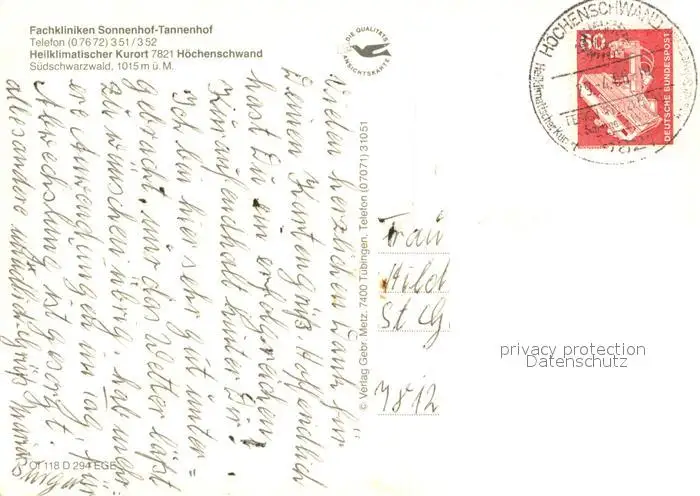 Fachkliniken Sonnenhof-Tannenhof
Telefon (0 76 72) 3 51 / 3 52
Heilklimatischer Kurort 7821 Höchenschwand
Südschwarzwald, 1015 m ü. M.
DIE QUALITÄTS
ANSICHTSKARTE
HÖCHENSCHWAND
Heilklimatischer Kurort
60
DEUTSCHE BUNDESPOST
Vielen herzlichen Dank für
Deinen Kartengruß. Hoffendlich
hast Du ein erfolgreichen
Kuraufendhalt hinter Dir.
Ich bin hier sehr gut unter
gebracht, nur das Wetter läßt
zu wünschen übrig. hab
Anwendungen am Tag, für
Abwechslung ist gesorgt.
alles andere mündlich Grüß
© Verlag Gebr. Metz, 7400 Tübingen, Telefon (07071) 31051
Frau
Hild
St G
7812
privacy protection
Datenschutz
Of 118 D 294 EGE